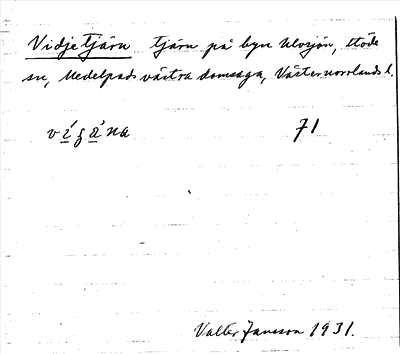 Vidjetjärn tjärn på byn Ulvsjön, Stöde
sn, Medelpads västra domsaga, Västernorrlands l.
71
Valter Jansson 1931.